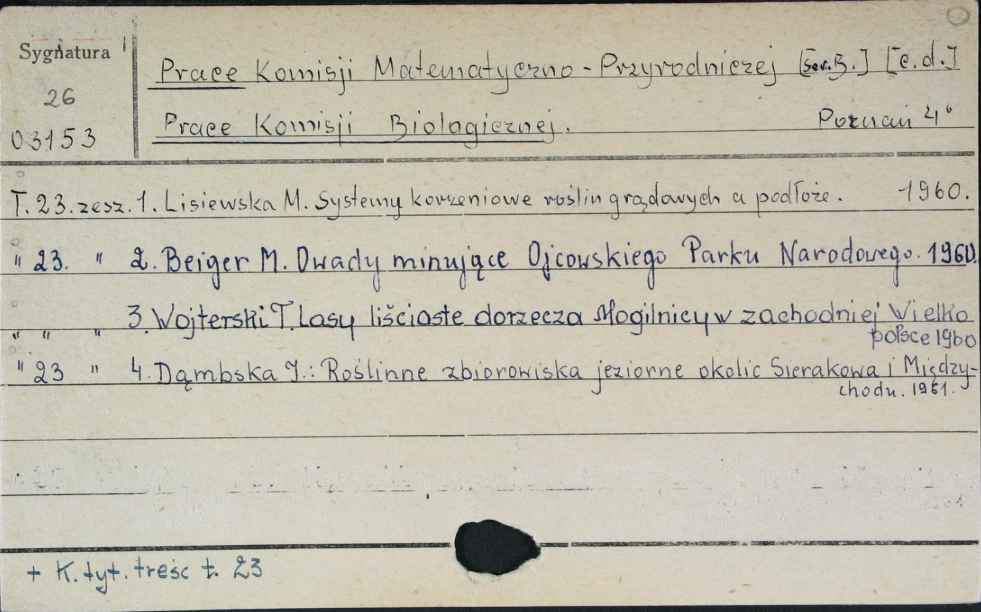 Sygnatura
26
03153
Prace Komisji Matematyczno-Przyrodniczej [Ser.B.] [c.d.]
Prace Komisji Biologicznej. Poznań 4°
T. 23. zesz. 1. Lisiewska M. Systemy korzeniowe roślin grądowych a podłoże. 1960.
" 23. " 2. Beiger M. Owady minujące Ojcowskiego Parku Narodowego. 1960.
" " " 3. Wojterski T. Lasy liściaste dorzecza Mogilnicy w zachodniej Wielko
polsce 1960
" 23 " 4. Dąmbska J.: Roślinne zbiorowiska jeziorne okolic Sierakowa i Między-
chodu. 1961.
+ K. tyt. treść t. 23